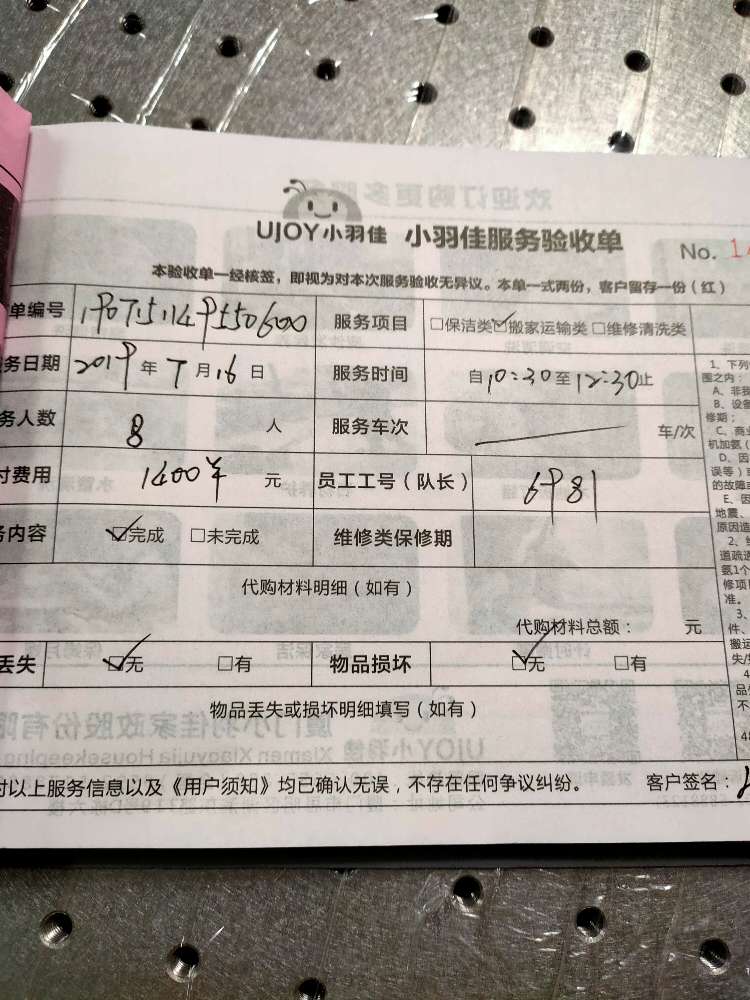 UJOY小羽佳 小羽佳服务验收单
No. 14
本验收单一经核签，即视为对本次服务验收无异议。本单一式两份，客户留存一份（红）
单编号 1907151149550600 服务项目 □保洁类☑搬家运输类□维修清洗类
务日期 2019年7月16日 服务时间 自10:30至12:30止
务人数 8 人 服务车次 车/次
付费用 1400羊 元 员工工号（队长） 6981
务内容 ☑完成 □未完成 维修类保修期
代购材料明细（如有）
代购材料总额： 元
丢失 ☑无 □有 物品损坏 ☑无 □有
物品丢失或损坏明细填写（如有）
对以上服务信息以及《用户须知》均已确认无误，不存在任何争议纠纷。 客户签名：
1、下列
围之内：
A、非我
B、设备
修期；
C、商业
机加氨（
D、因
误等）
的故障或
E、因
地震、
原因造
2、
道疏通
氨1个
修项目
准。
3、
件、
搬运
失/
4
品
不
48